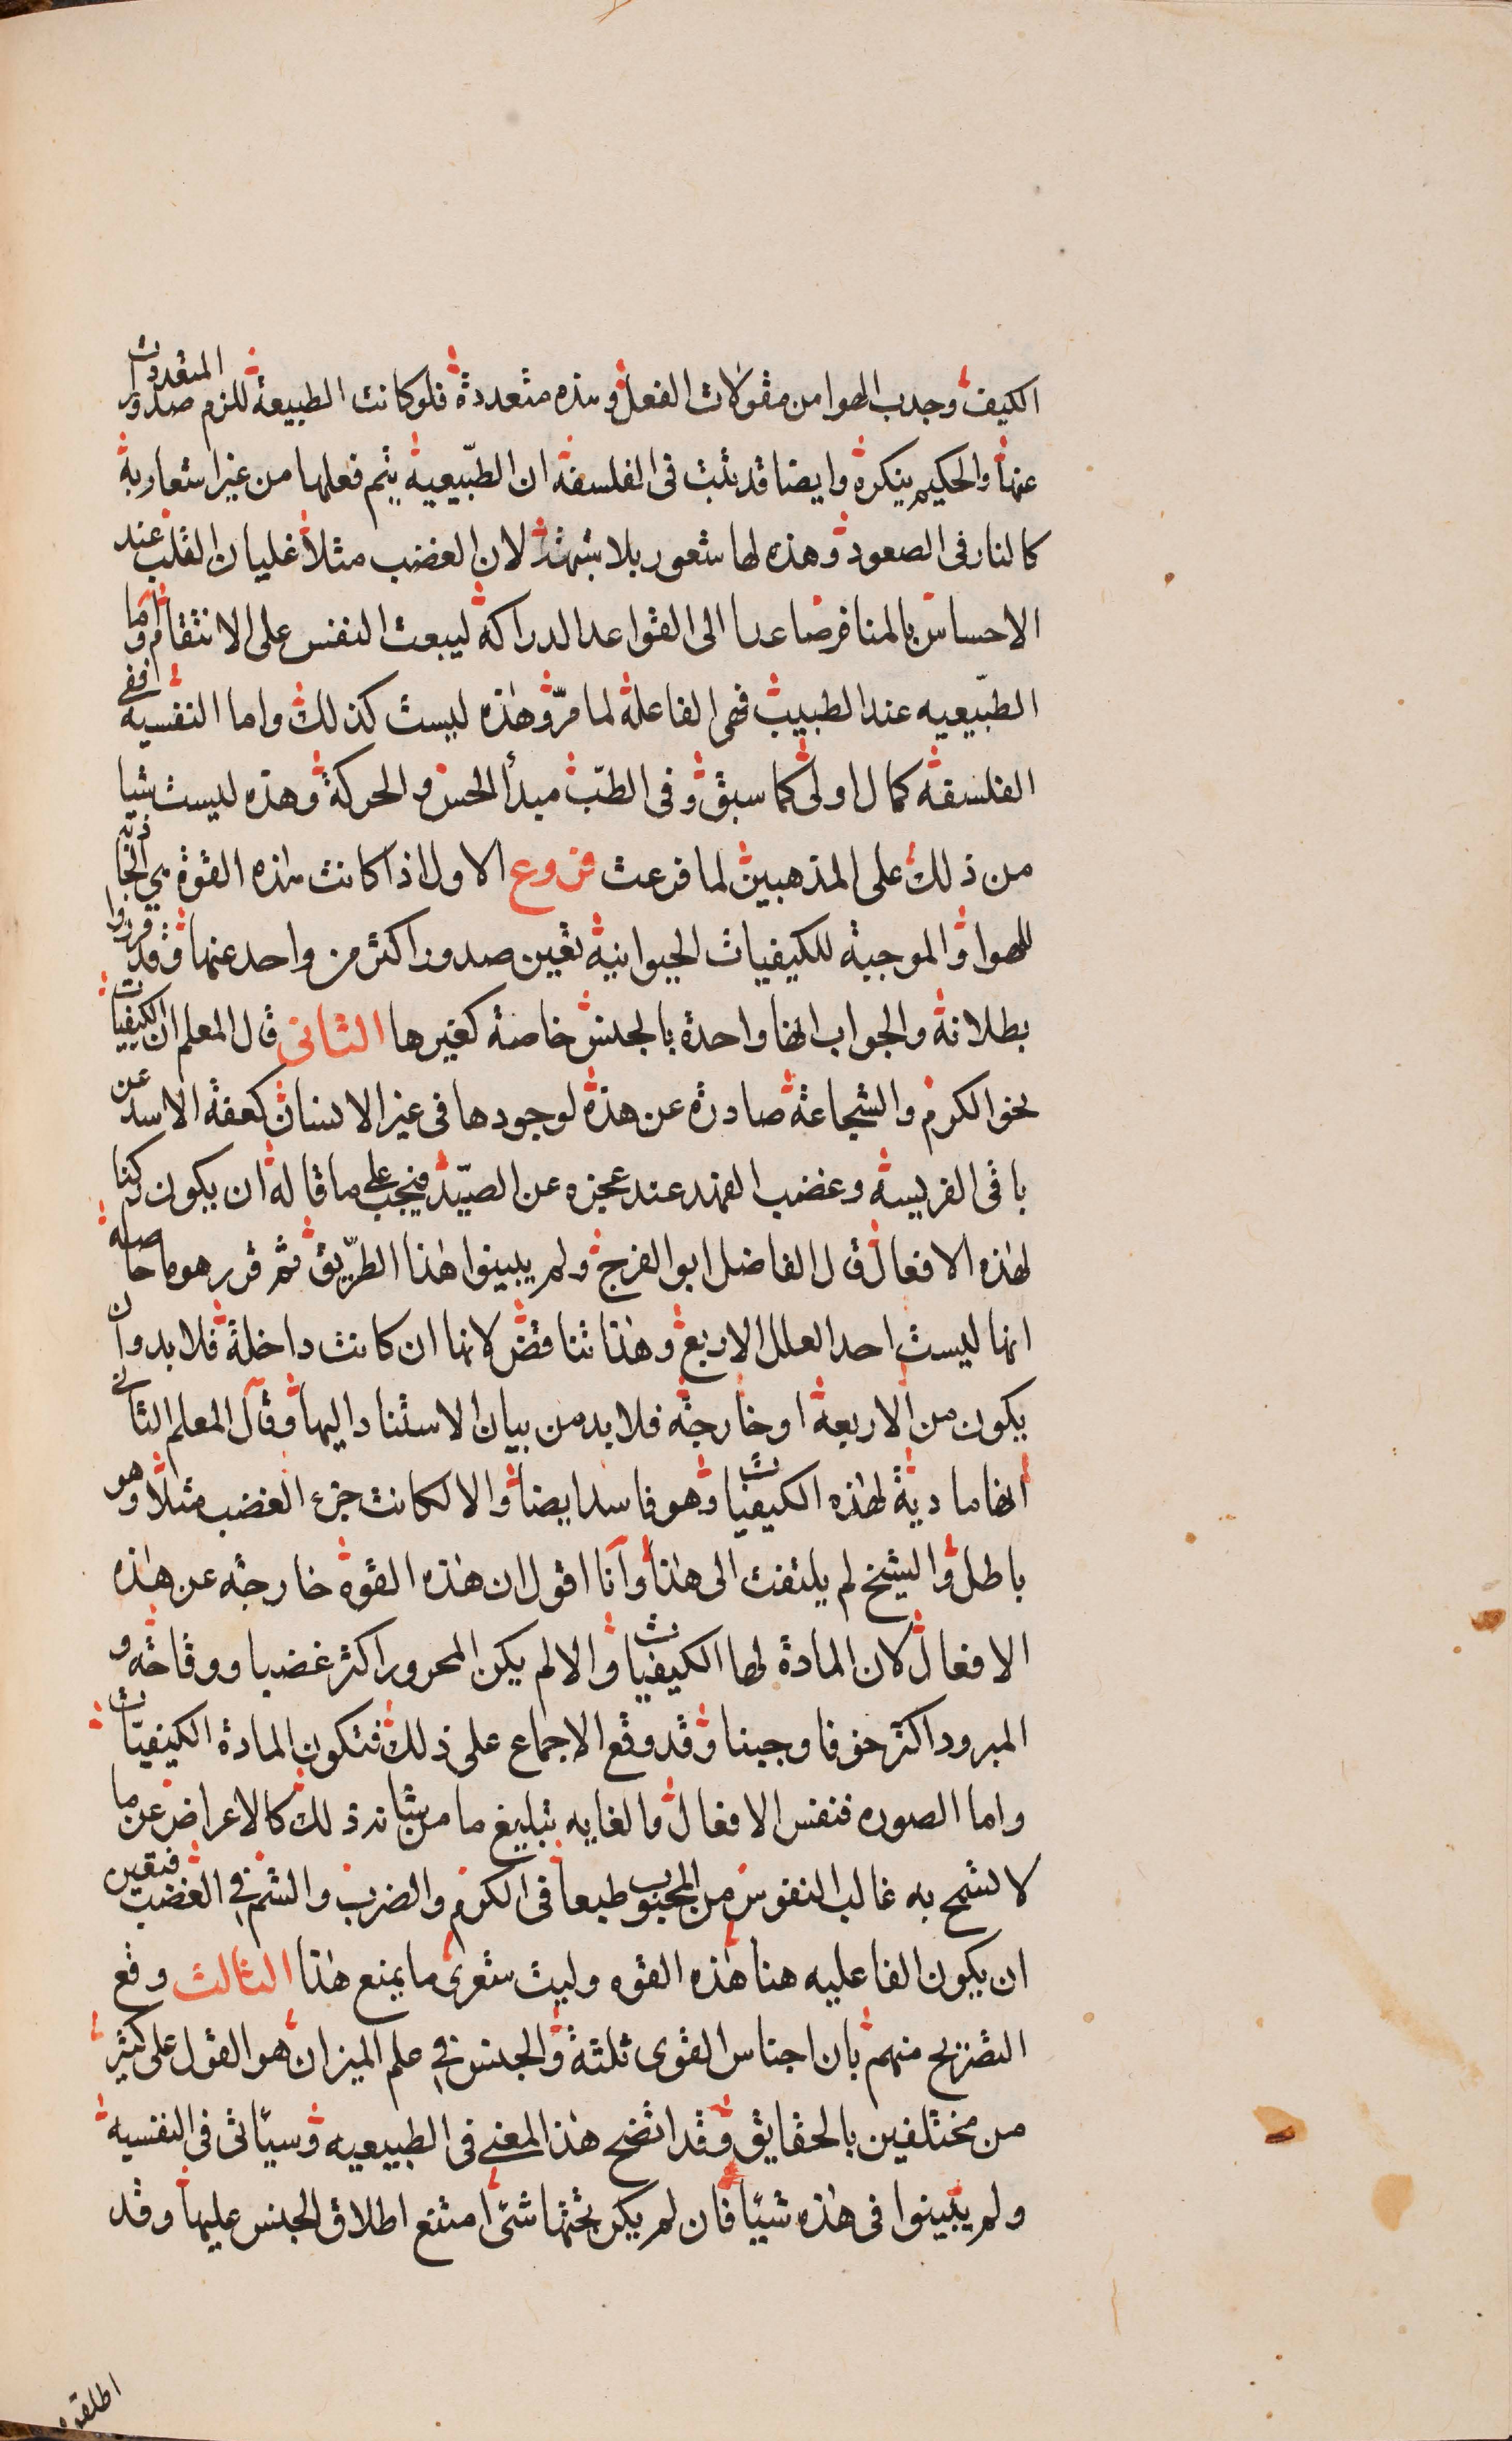 الكيف وجذب الهوا من مقولات الفعل وهذه متعددة فلو كانت الطبيعة للزم صدور المتعددات
عنها والحكيم ينكره وايضا قد ثبت في الفلسفة ان الطبّيعية يتم فعلها من غير اشعار به
كالنار في الصعود وهذه لها شعور بلا شبهة لان الغضب مثلا غليان القلب عند
الاحساس بالمنافر صاعدا الى القواعد الدراكة ليبعث النفس على الانتقام واما
الطبّيعيه عند الطبيب فهى الفاعلة لما مرّ وهذه ليست كذلك واما النفسية ففى
الفلسفة كمال اولى كما سبق وفى الطبّ مبدأ الحس والحركة وهذه ليست شيا
من ذلك على المذهبين لما فرعت فروع الاول اذا كانت هذه القوة هي الجاذبة
للهوا والموجبة للكيفيات الحيوانية تعين صدور اكثر من واحد عنها وقد قرروا
بطلانه والجواب انها واحدة بالجنس خاصة كغيرها الثانى قال المعلم ان الكيفيات
نحو الكرم والشجاعة صادرة عن هذه لوجودها فى غير الانسان كعفة الاسد عن
باقى الفريسة وغضب الفهد عند عجزه عن الصيّد فيجب على ما قاله ان يكون ركنا
لهذه الافعال قال الفاضل ابو الفرج ولم يبينوا هذا الطرّيق ثم قرر هو ما حاصله
انها ليست احد العلل الاربع وهذا تناقض لانها ان كانت داخلة فلا بد وان
يكون من الاربعة او خارجة فلا بد من بيان الاستناد اليها وقال المعلم الثانى
انها مادية لهذه الكيفيات وهو فاسد ايضا والا لكانت جزء الغضب مثلا وهو
باطل والشيخ لم يلتفت الى هذا وآنا اقول ان هذه القوة خارجة عن هذه
الافعال لان المادة لها الكيفيات والا لم يكن المحرور اكثر غضبا ووقاحة و
المبرود اكثر خوفا وجبنا وقد وقع الاجماع على ذلك فتكون المادة الكيفيّات
واما الصوره فنفس الافعال والغايه تبليغ ما من شانه ذلك كالاعراض عن ما
لا تسمح به غالب النفوس من المحبوب طبعا فى الكرم والضرب والشتم في الغضب فتعين
ان يكون الفاعليه هنا هذه القوه وليت شعرى ما يمنع هذا الثالث وقع
التصريح منهم بان اجناس القوى ثلثة والجنس في علم الميزان هو القول على كثير
من مختلفين بالحقايق وقد اتضح هذا المعني فى الطبيعيه وسيّاتى فى النفسية
ولم يبينوا فى هذه شيئا فان لم يكن تحتها شئ امتنع اطلاق الجنس عليها وقد
اطلقوه